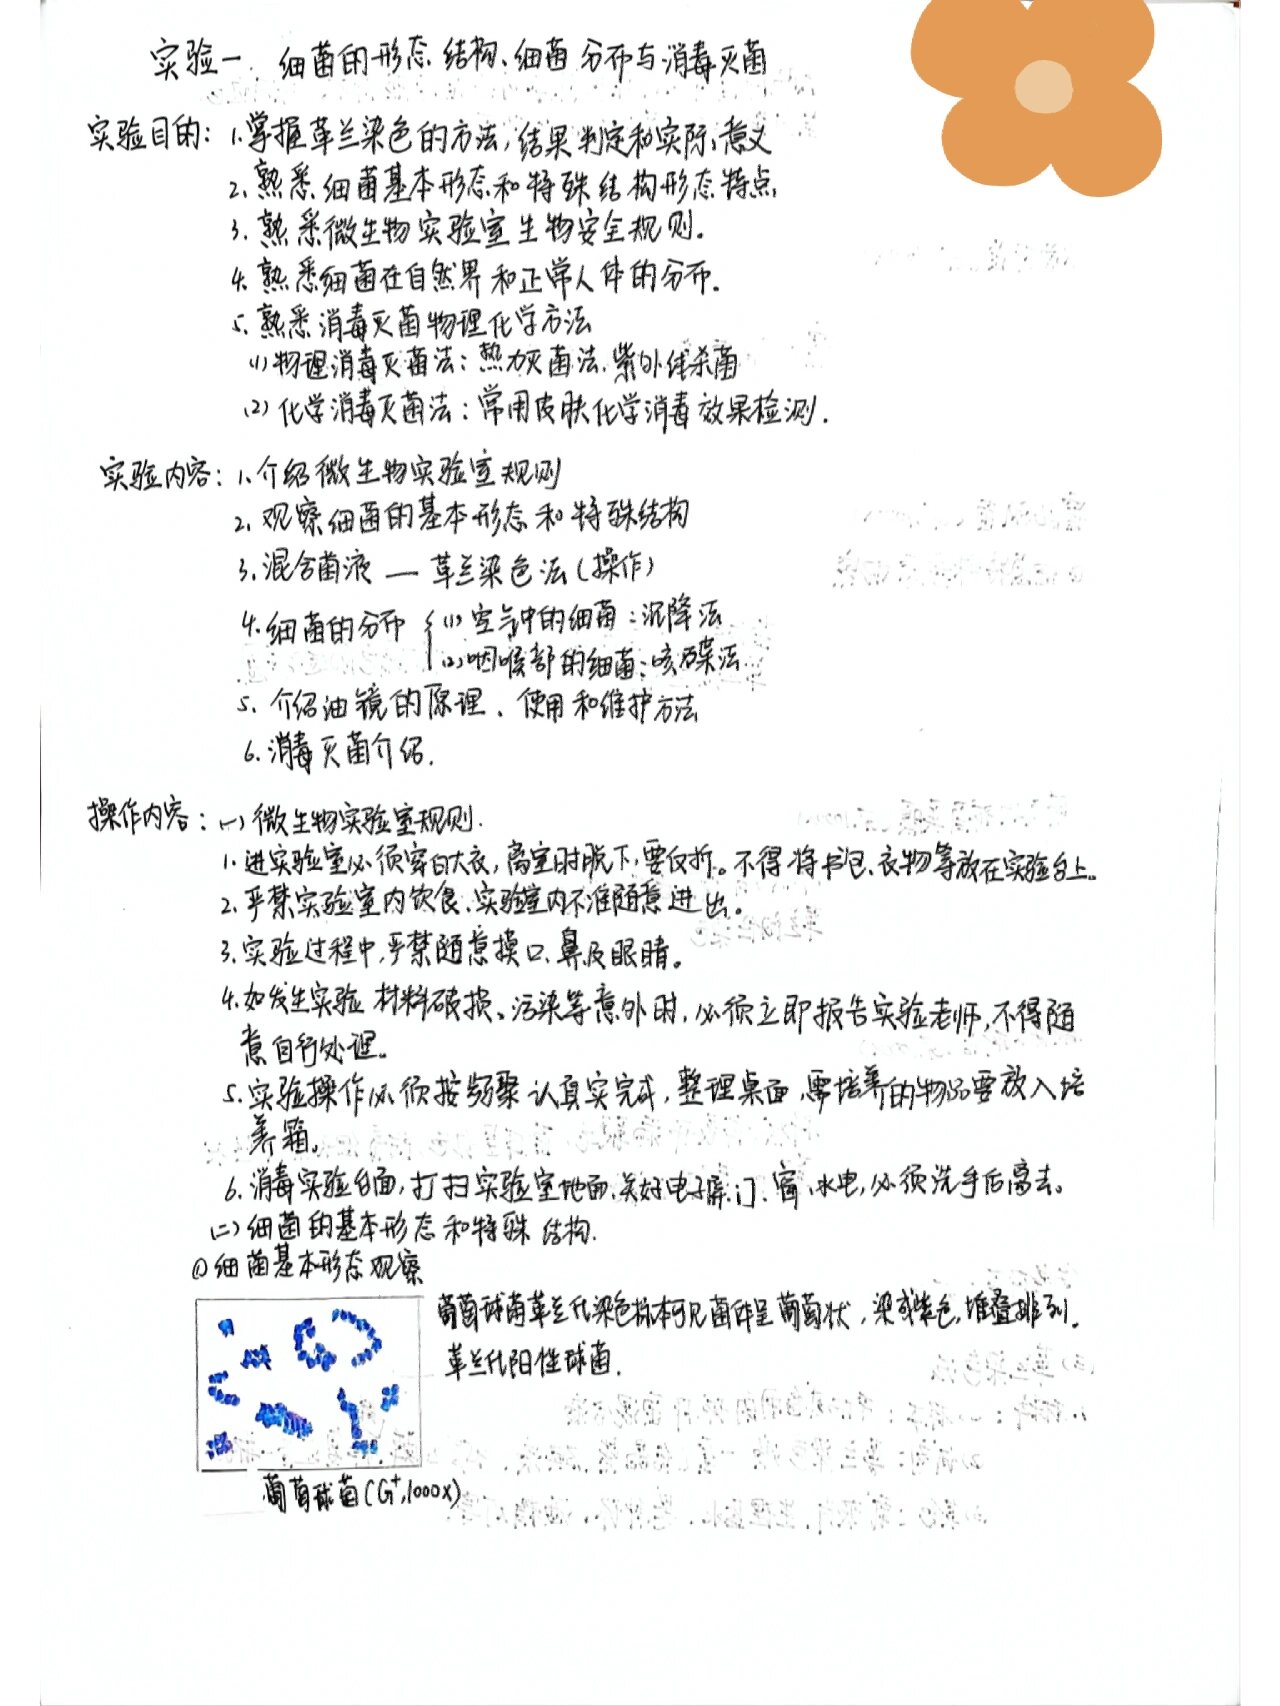 实验一、细菌的形态结构、细菌分布与消毒灭菌
实验目的：1.掌握革兰染色的方法,结果判定和实际意义
2.熟悉细菌基本形态和特殊结构形态特点
3.熟悉微生物实验室生物安全规则。
4.熟悉细菌在自然界和正常人体的分布。
5.熟悉消毒灭菌物理化学方法
(1)物理消毒灭菌法：热力灭菌法.紫外线杀菌
(2)化学消毒灭菌法：常用皮肤化学消毒效果检测.
实验内容：1.介绍微生物实验室规则
2.观察细菌的基本形态和特殊结构
3.混合菌液 — 革兰染色法(操作)
4.细菌的分布 { (1)空气中的细菌：沉降法
(2)咽喉部的细菌：咳碟法
5.介绍油镜的原理、使用和维护方法
6.消毒灭菌介绍.
操作内容：(一)微生物实验室规则.
1.进实验室必须穿白大衣,离室时脱下,要反折。不得将书包、衣物等放在实验台上。
2.严禁实验室内饮食、实验室内不准随意进出。
3.实验过程中,严禁随意摸口、鼻及眼睛。
4.如发生实验材料破损、污染等意外时,必须立即报告实验老师,不得随
意自行处理。
5.实验操作必须按步骤认真实完成,整理桌面,需培养的物品要放入培
养箱。
6.消毒实验台面,打扫实验室地面、关好电子屏、门、窗、水电,必须洗手后离去。
(二)细菌的基本形态和特殊结构.
①细菌基本形态观察
葡萄球菌革兰氏染色标本可见菌体呈葡萄状,染成紫色,堆叠排列.
革兰氏阳性球菌.
葡萄球菌(G⁺,1000x)